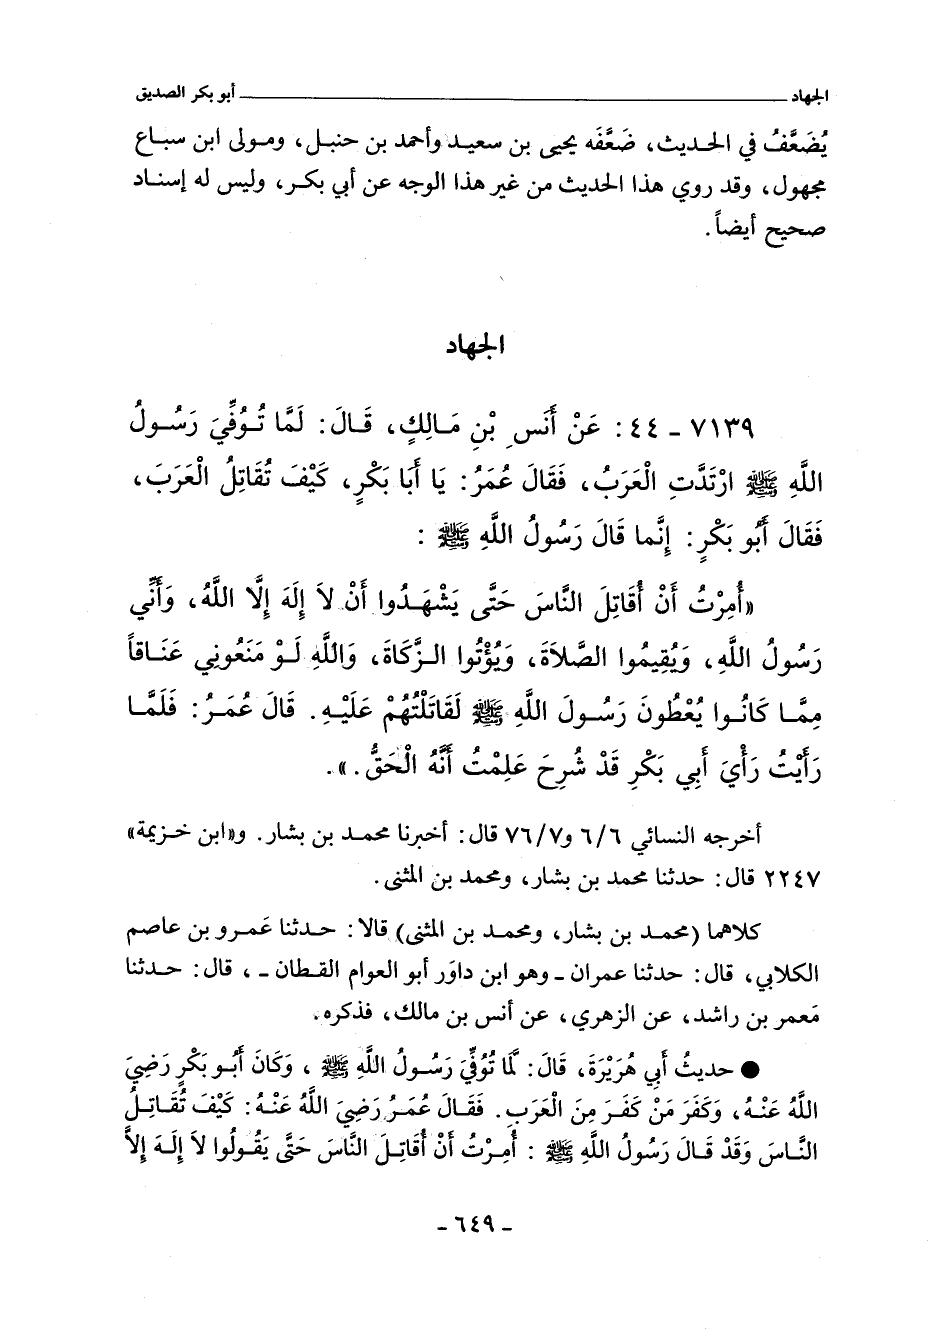 الجهاد ــــــــــــــــــــ أبو بكر الصديق
يُضَعَّفُ في الحديث، ضَعَّفَه يحيى بن سعيد وأحمد بن حنبل، ومولى ابن سباع
مجهول، وقد روي هذا الحديث من غير هذا الوجه عن أبي بكر، وليس له إسناد
صحيح أيضاً.
الجهاد
٧١٣٩ - ٤٤: عَنْ أَنَسِ بْنِ مَالِكٍ، قَالَ: لَمَّا تُوُفِّيَ رَسُولُ
اللَّهِ ﷺ ارْتَدَّتِ الْعَرَبُ، فَقَالَ عُمَرُ: يَا أَبَا بَكْرٍ، كَيْفَ تُقَاتِلُ الْعَرَبَ،
فَقَالَ أَبُو بَكْرٍ: إِنَّما قَالَ رَسُولُ اللَّهِ ﷺ :
«أُمِرْتُ أَنْ أُقَاتِلَ النَّاسَ حَتَّى يَشْهَدُوا أَنْ لاَ إِلَهَ إِلَّا اللَّهُ، وَأَنِّي
رَسُولُ اللَّهِ، وَيُقِيمُوا الصَّلاَةَ، وَيُؤْتُوا الزَّكَاةَ، وَاللَّهِ لَوْ مَنَعُونِي عَنَاقاً
مِمَّا كَانُوا يُعْطُونَ رَسُولَ اللَّهِ ﷺ لَقَاتَلْتُهُمْ عَلَيْهِ. قَالَ عُمَرُ: فَلَمَّا
رَأَيْتُ رَأْيَ أَبِي بَكْرٍ قَدْ شُرِحَ عَلِمْتُ أَنَّهُ الْحَقُّ.».
أخرجه النسائي ٦/٦ و٧٦/٧ قال: أخبرنا محمد بن بشار. و«ابن خزيمة»
٢٢٤٧ قال: حدثنا محمد بن بشار، ومحمد بن المثنى.
كلاهما (محمد بن بشار، ومحمد بن المثنى) قالا: حدثنا عَمرو بن عاصم
الكلابي، قال: حدثنا عمران - وهو ابن داوَر أبو العوام القطان -، قال: حدثنا
مَعمر بن راشد، عن الزهري، عن أنس بن مالك، فذكره.
● حديثُ أَبِي هُرَيْرَةَ، قَالَ: لَمَّا تُوُفِّيَ رَسُولُ اللَّهِ ﷺ ، وَكَانَ أَبُو بَكْرٍ رَضِيَ
اللَّهُ عَنْهُ، وَكَفَرَ مَنْ كَفَرَ مِنَ الْعَرَبِ. فَقَالَ عُمَرُ رَضِيَ اللَّهُ عَنْهُ: كَيْفَ تُقَاتِلُ
النَّاسَ وَقَدْ قَالَ رَسُولُ اللَّهِ ﷺ : أُمِرْتُ أَنْ أُقَاتِلَ النَّاسَ حَتَّى يَقُولُوا لاَ إِلَهَ إِلاَّ
- ٦٤٩ -